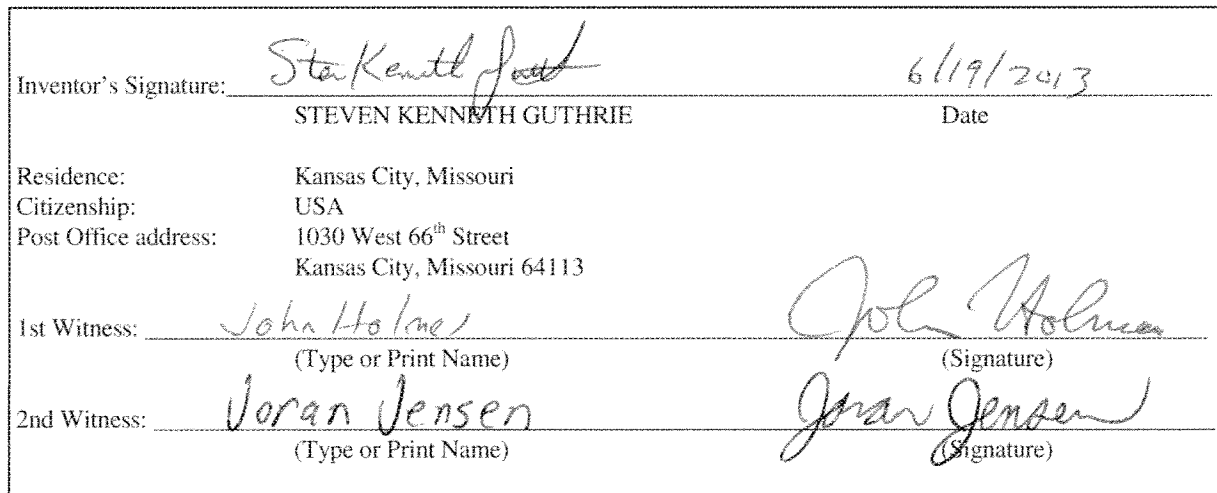 Inventor's Signature: Steven Kenneth Guthrie 6/19/2013
STEVEN KENNETH GUTHRIE Date
Residence: Kansas City, Missouri
Citizenship: USA
Post Office address: 1030 West 66th Street
Kansas City, Missouri 64113
1st Witness: John Holmes John Holmes
(Type or Print Name) (Signature)
2nd Witness: Joran Jensen Joran Jensen
(Type or Print Name) (Signature)